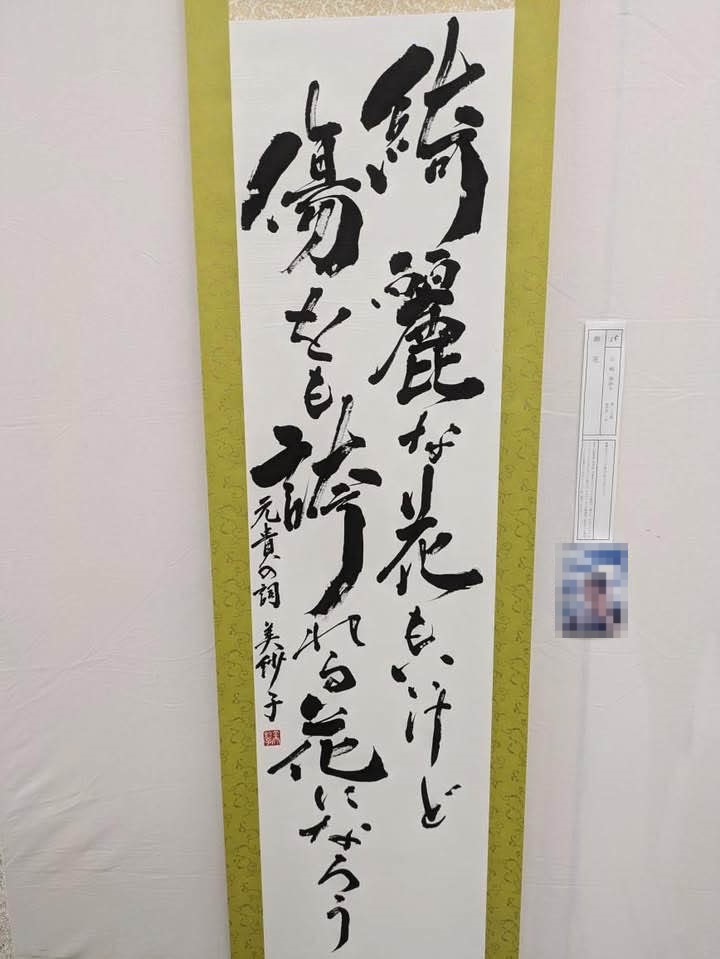 綺麗な花もいいけど
傷をも誇れる花になろう
元貴の詞 美紗子